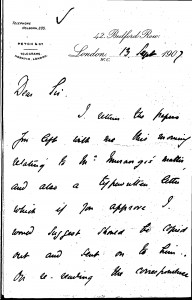 TELEPHONE
HOLBORN, 220.
PETCH & Co.
TELEGRAMS
42, Bedford Row,
London, 13 Sept 1907
W.C.
Dear Sir.
I return the papers
you left with me this morning
relating to Mr matter,
and also a typewritten letter
which if you approve I
would suggest should be copied
out and sent on to him.
On re-reading the correspondence